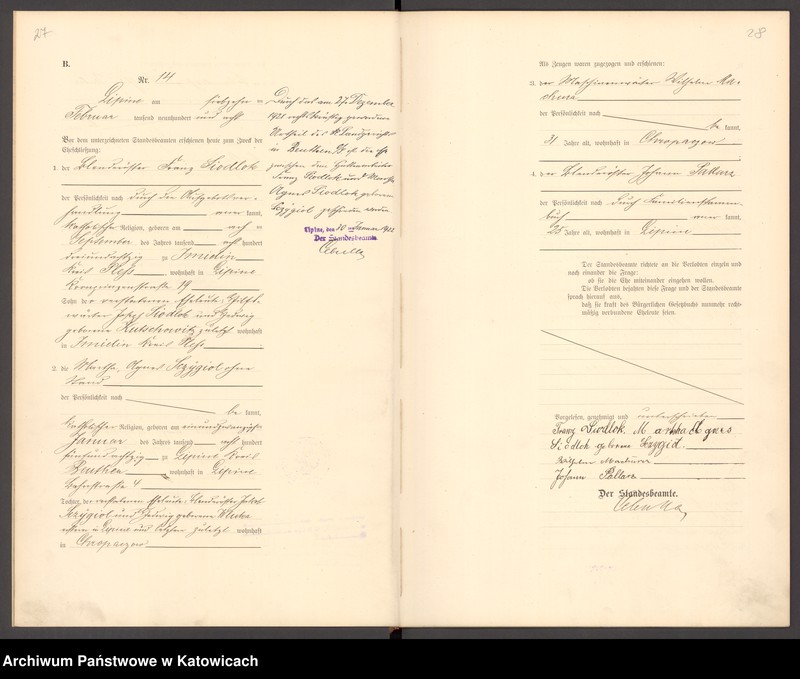 27
B.
Nr. 14
Lipine am siebzehn
Februar tausend neunhundert und acht
Vor dem unterzeichneten Standesbeamten erschienen heute zum Zweck der
Eheschließung:
1. der Franz Siodlok
der Persönlichkeit nach durch die Aufgebotsver-
handlung kannt,
katholischer Religion, geboren am acht
September des Jahres tausend acht hundert
dreiundachtzig zu Imielin
Kreis Pleß, wohnhaft in Lipine
Kronprinzenstraße 19
Sohn der verstorbenen Eheleute:
Josef Siodlok und Hedwig
geborene Kutschowitz zuletzt wohnhaft
in Imielin Kreis Pleß
2. die Martha, Agnes Szzygiol ohne
Stand
der Persönlichkeit nach
be kannt,
katholischer Religion, geboren am einundzwanzig
Januar des Jahres tausend acht hundert
fünfundachtzig zu Lipine Kreis
Beuthen, wohnhaft in Lipine
Bahnstraße 4
Tochter der verstorbenen Eheleute:
Szzygiol und Hedwig geborene
Lipine und zuletzt wohnhaft
in Chropaczow
Durch das am 27. Dezember
1921 rechtskräftig gewordene
Urtheil des Landgerichts
in Beuthen O/S ist die Ehe
zwischen dem Hüttenarbeiter
Franz Siodlok und Martha
Agnes Siodlok geborene
Szzygiol geschieden worden
Lipine, den 30 Januar 1922
Der Standesbeamte.
28
Als Zeugen waren zugezogen und erschienen:
3. der Maschinenwärter Wilhelm Ma-
chura
der Persönlichkeit nach
be kannt,
31 Jahre alt, wohnhaft in Chropaczow
4. der Johann
der Persönlichkeit nach durch Familienstamm-
buch kannt,
25 Jahre alt, wohnhaft in Lipine
Der Standesbeamte richtete an die Verlobten einzeln und
nach einander die Frage:
ob sie die Ehe miteinander eingehen wollen.
Die Verlobten bejahten diese Frage und der Standesbeamte
sprach hierauf aus,
daß sie kraft des Bürgerlichen Gesetzbuchs nunmehr recht-
mäßig verbundene Eheleute seien.
Vorgelesen, genehmigt und unterschrieben
Franz Siodlok. Martha Agnes
Siodlok geborene Szzygiol.
Wilhelm Machura
Johann
Der Standesbeamte.
Archiwum Państwowe w Katowicach